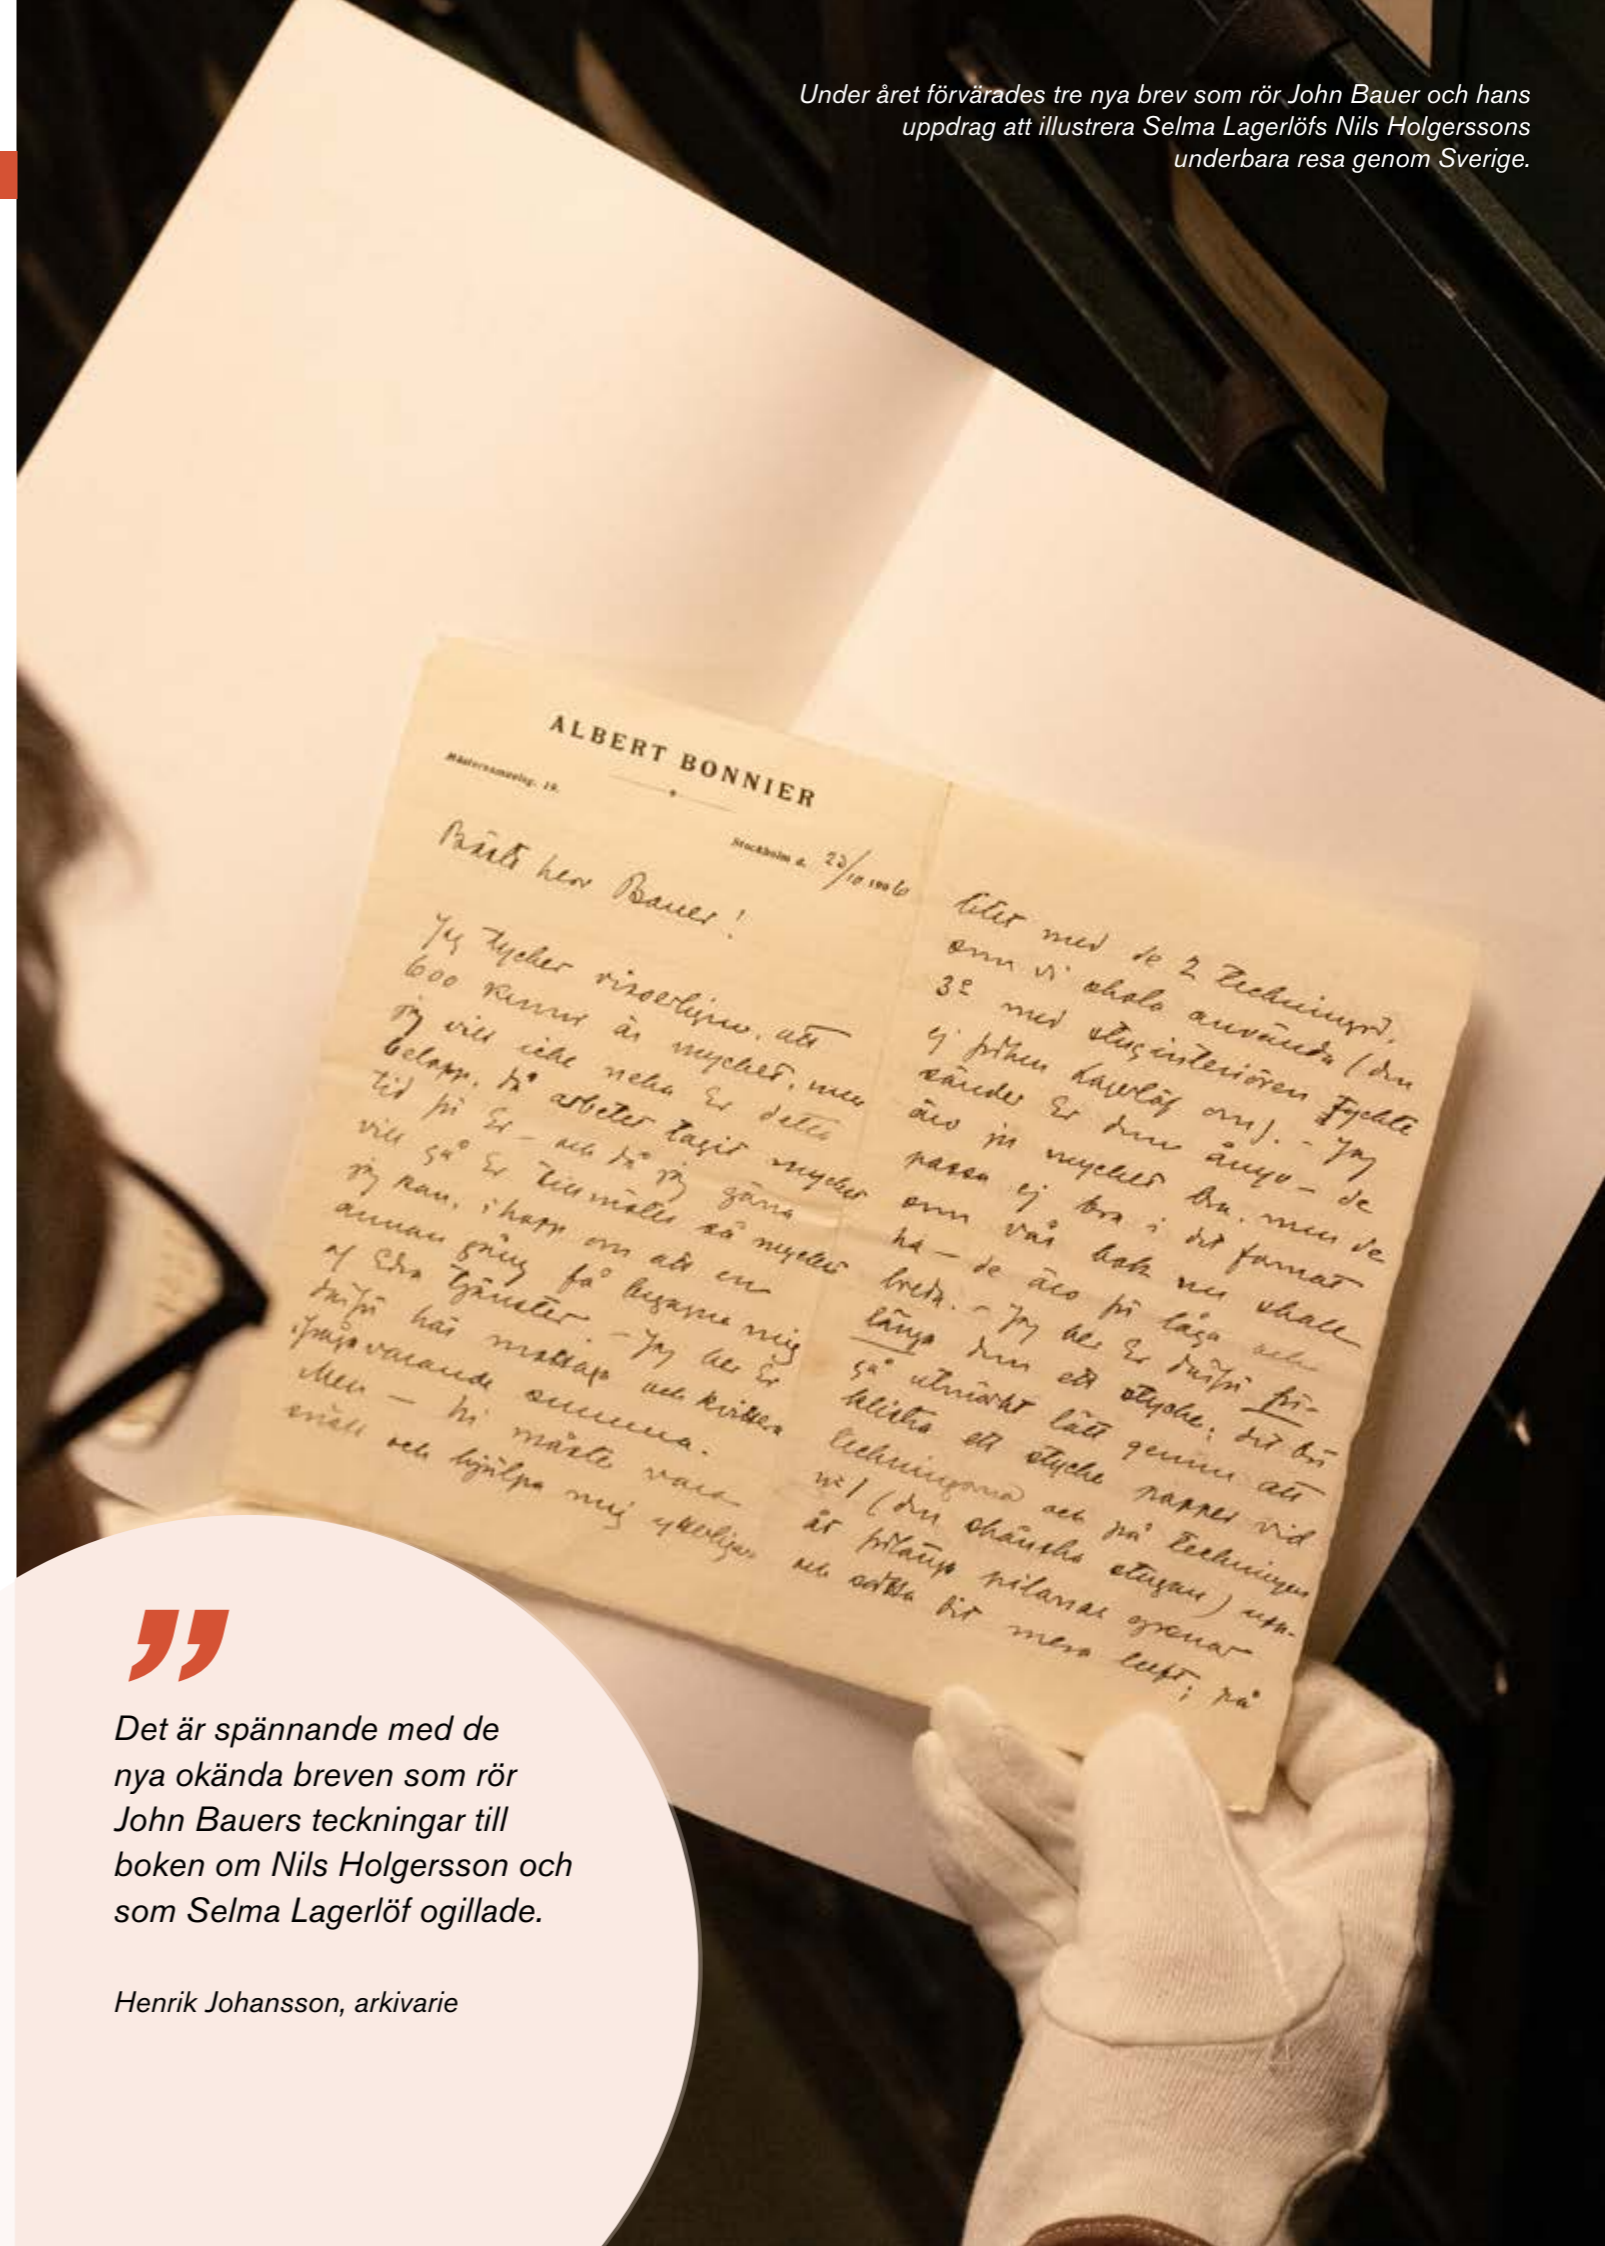 Under året förvärades tre nya brev som rör John Bauer och hans
uppdrag att illustrera Selma Lagerlöfs Nils Holgerssons
underbara resa genom Sverige.
ALBERT BONNIER
Mästersamuelsg. 19.
Stockholm d.
Bäste herr Bauer!
Jag tycker visserligen, att
600 kronor är mycket, men
jag vill icke neka Er detta
belopp, då arbetet tagit mycket
tid för Er – och då jag gärna
vill gå Er till mötes så mycket
jag kan, i hopp om att en
annan gång få begagna mig
af Edra tjänster. – Jag ber Er
därför här mottaga och kvittera
ifrågavarande summa.
Men – Ni måste vara
snäll och hjälpa mig ytterligare
litet med de 2 teckningar,
som vi skola använda (den
3e med stuginteriören tyckte
ej fröken Lagerlöf om). – Jag
sänder Er dem ånyo – de
äro ju mycket bra, men de
passa ej bra i det format
som vår bok nu skall
ha – de äro för låga och
breda. – Jag ber Er därför för-
länga dem ett stycke; det bör
gå utmärkt lätt genom att
klistra ett stycke papper vid
teckningarna och på teckningen
nº 1 (den skånska stugan) upp-
åt förlänga pilarnas grenar
och sätta dit mera luft; på
”
Det är spännande med de
nya okända breven som rör
John Bauers teckningar till
boken om Nils Holgersson och
som Selma Lagerlöf ogillade.
Henrik Johansson, arkivarie